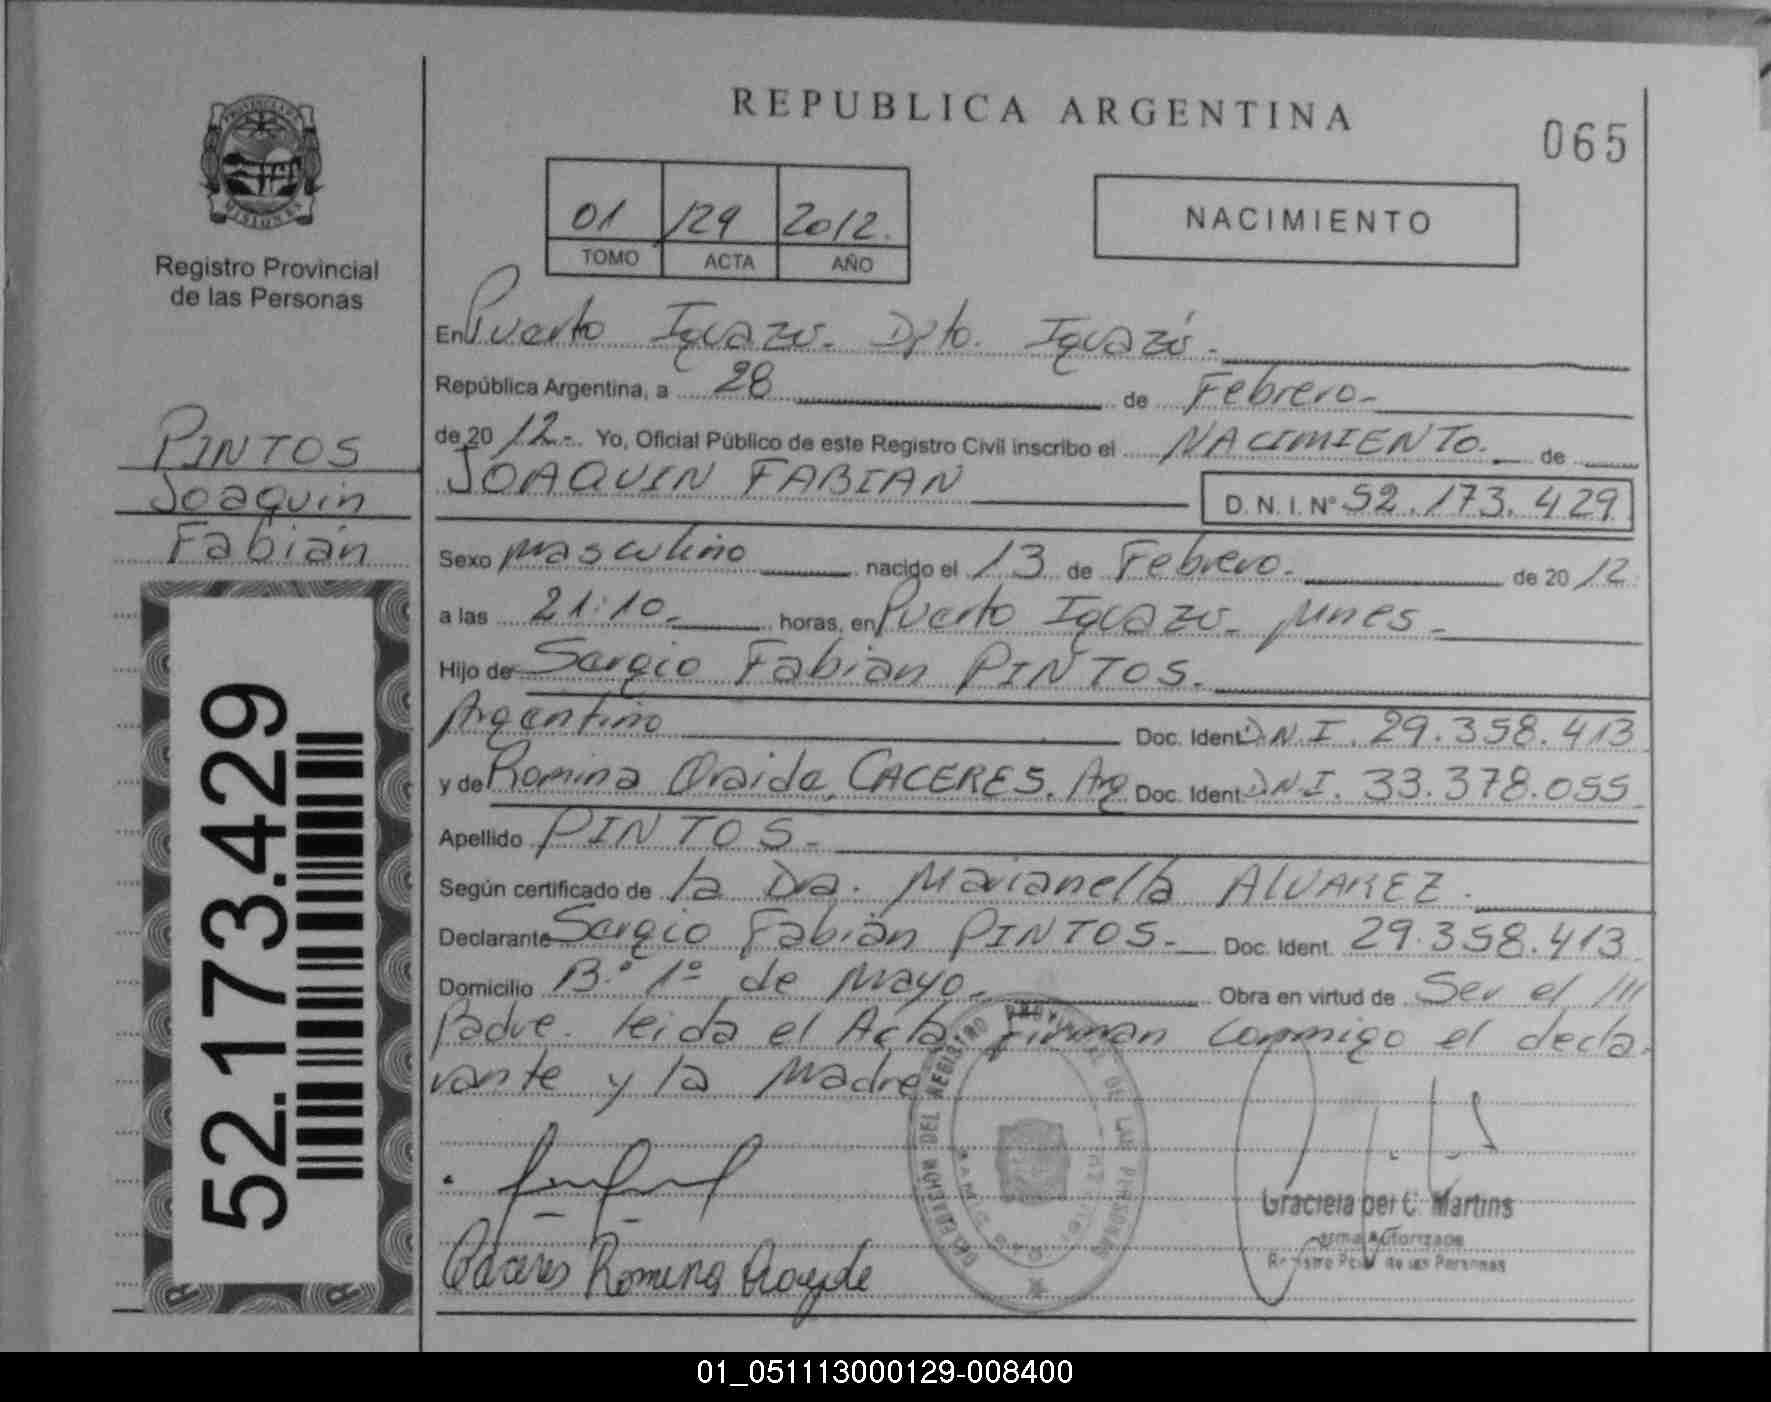 REPUBLICA ARGENTINA
065
PROVINCIA DE
MISIONES
Registro Provincial
de las Personas
01 129 2012.
TOMO ACTA AÑO
NACIMIENTO
En Puerto Iguazu. Dpto. Iguazú.
República Argentina, a 28 de Febrero.
de 2012. Yo, Oficial Público de este Registro Civil inscribo el NACIMIENTO. de
JOAQUIN FABIAN D. N. I. Nº 52.173.429
PINTOS
Joaquin
Fabian
52.173.429
Sexo masculino nacido el 13 de Febrero. de 2012
a las 21:10 horas, en Puerto Iguazu. Mnes.
Hijo de Sergio Fabian PINTOS.
Argentino Doc. Ident. D.N.I. 29.358.413
y de Romina Oraida, CACERES. Arg Doc. Ident. D.N.I. 33.378.055
Apellido PINTOS.
Según certificado de la Dra. Marianella ALVAREZ.
Declarante Sergio Fabian PINTOS. Doc. Ident. 29.358.413
Domicilio B.º 1º de Mayo. Obra en virtud de Ser el ///
Padre. leida el Acta Firman conmigo el decla-
rante y la Madre
DELEGACION DEL REGISTRO PROVINCIAL DE LAS PERSONAS
Caceres Romina
Graciela del C. Martins
Firma Autorizada
Registro Pcial de las Personas
01_051113000129-008400